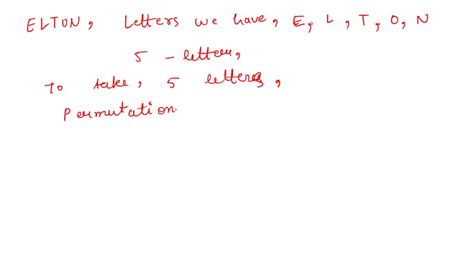 ELTON, Letters we have, E, L, T, O, N
5 - letter,
To take, 5 letters,
Permutation